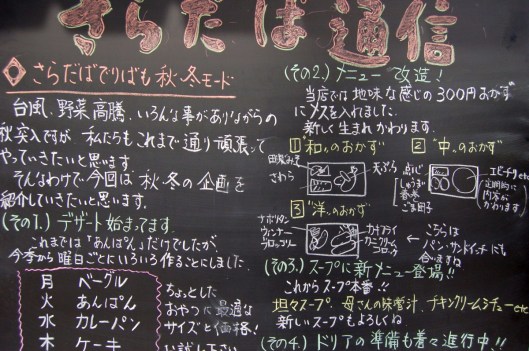 さらだば通信
さらだばでりばも秋・冬モード
台風、野菜高騰、いろんな事がありながらの
秋突入ですが、私たちもこれまで通り頑張って
やっていきたいと思います。
そんなわけで今回は秋・冬の企画を
紹介していきたいと思います。
(その1.) デザート始まってます。
これまでは"あんぱん"だけでしたが、
今季から曜日ごとにいろいろ作ることにしました。
月 ベーグル
火 あんぱん
水 カレーパン
木 ケーキ
ちょっとした
おやつに最適な
サイズと価格!
(その2.) メニュー 改造!
当店では地味な感じの300円おかず
にメスを入れました。
新しく生まれかわります。
1 "和"のおかず
2 "中"のおかず
田楽みそ
さわら
天ぷら
しゅうまい
春巻
ごま団子
エビチリetc
定期的に
内容が
かわります。
3 "洋"のおかず
ナポリタン
ウィンナー
ブロッコリー
カキフライ
カニクリーム
コロッケ
← こちらは
パン・サンドイッチにも
合いますね
(その3.) スープに新メニュー登場!!
これからスープ本番!!
坦々スープ、母さんの味噌汁、チキンクリームシチューetc
新しいスープもよろしくね。
(その4.) ドリアの準備も着々進行中!!